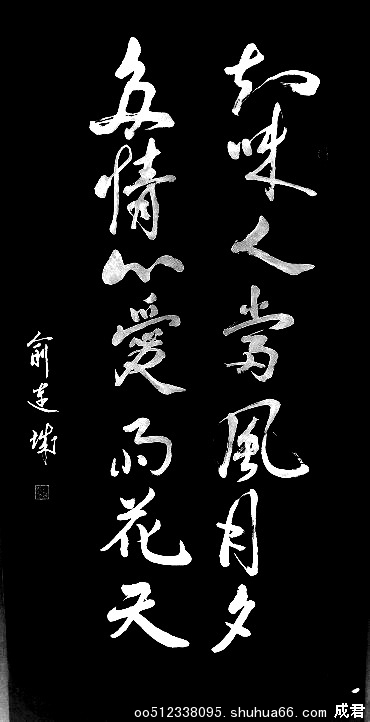 知味人當風月夕
多情心愛雨花天
俞 城
oo512338095.shuhua66.com 成君